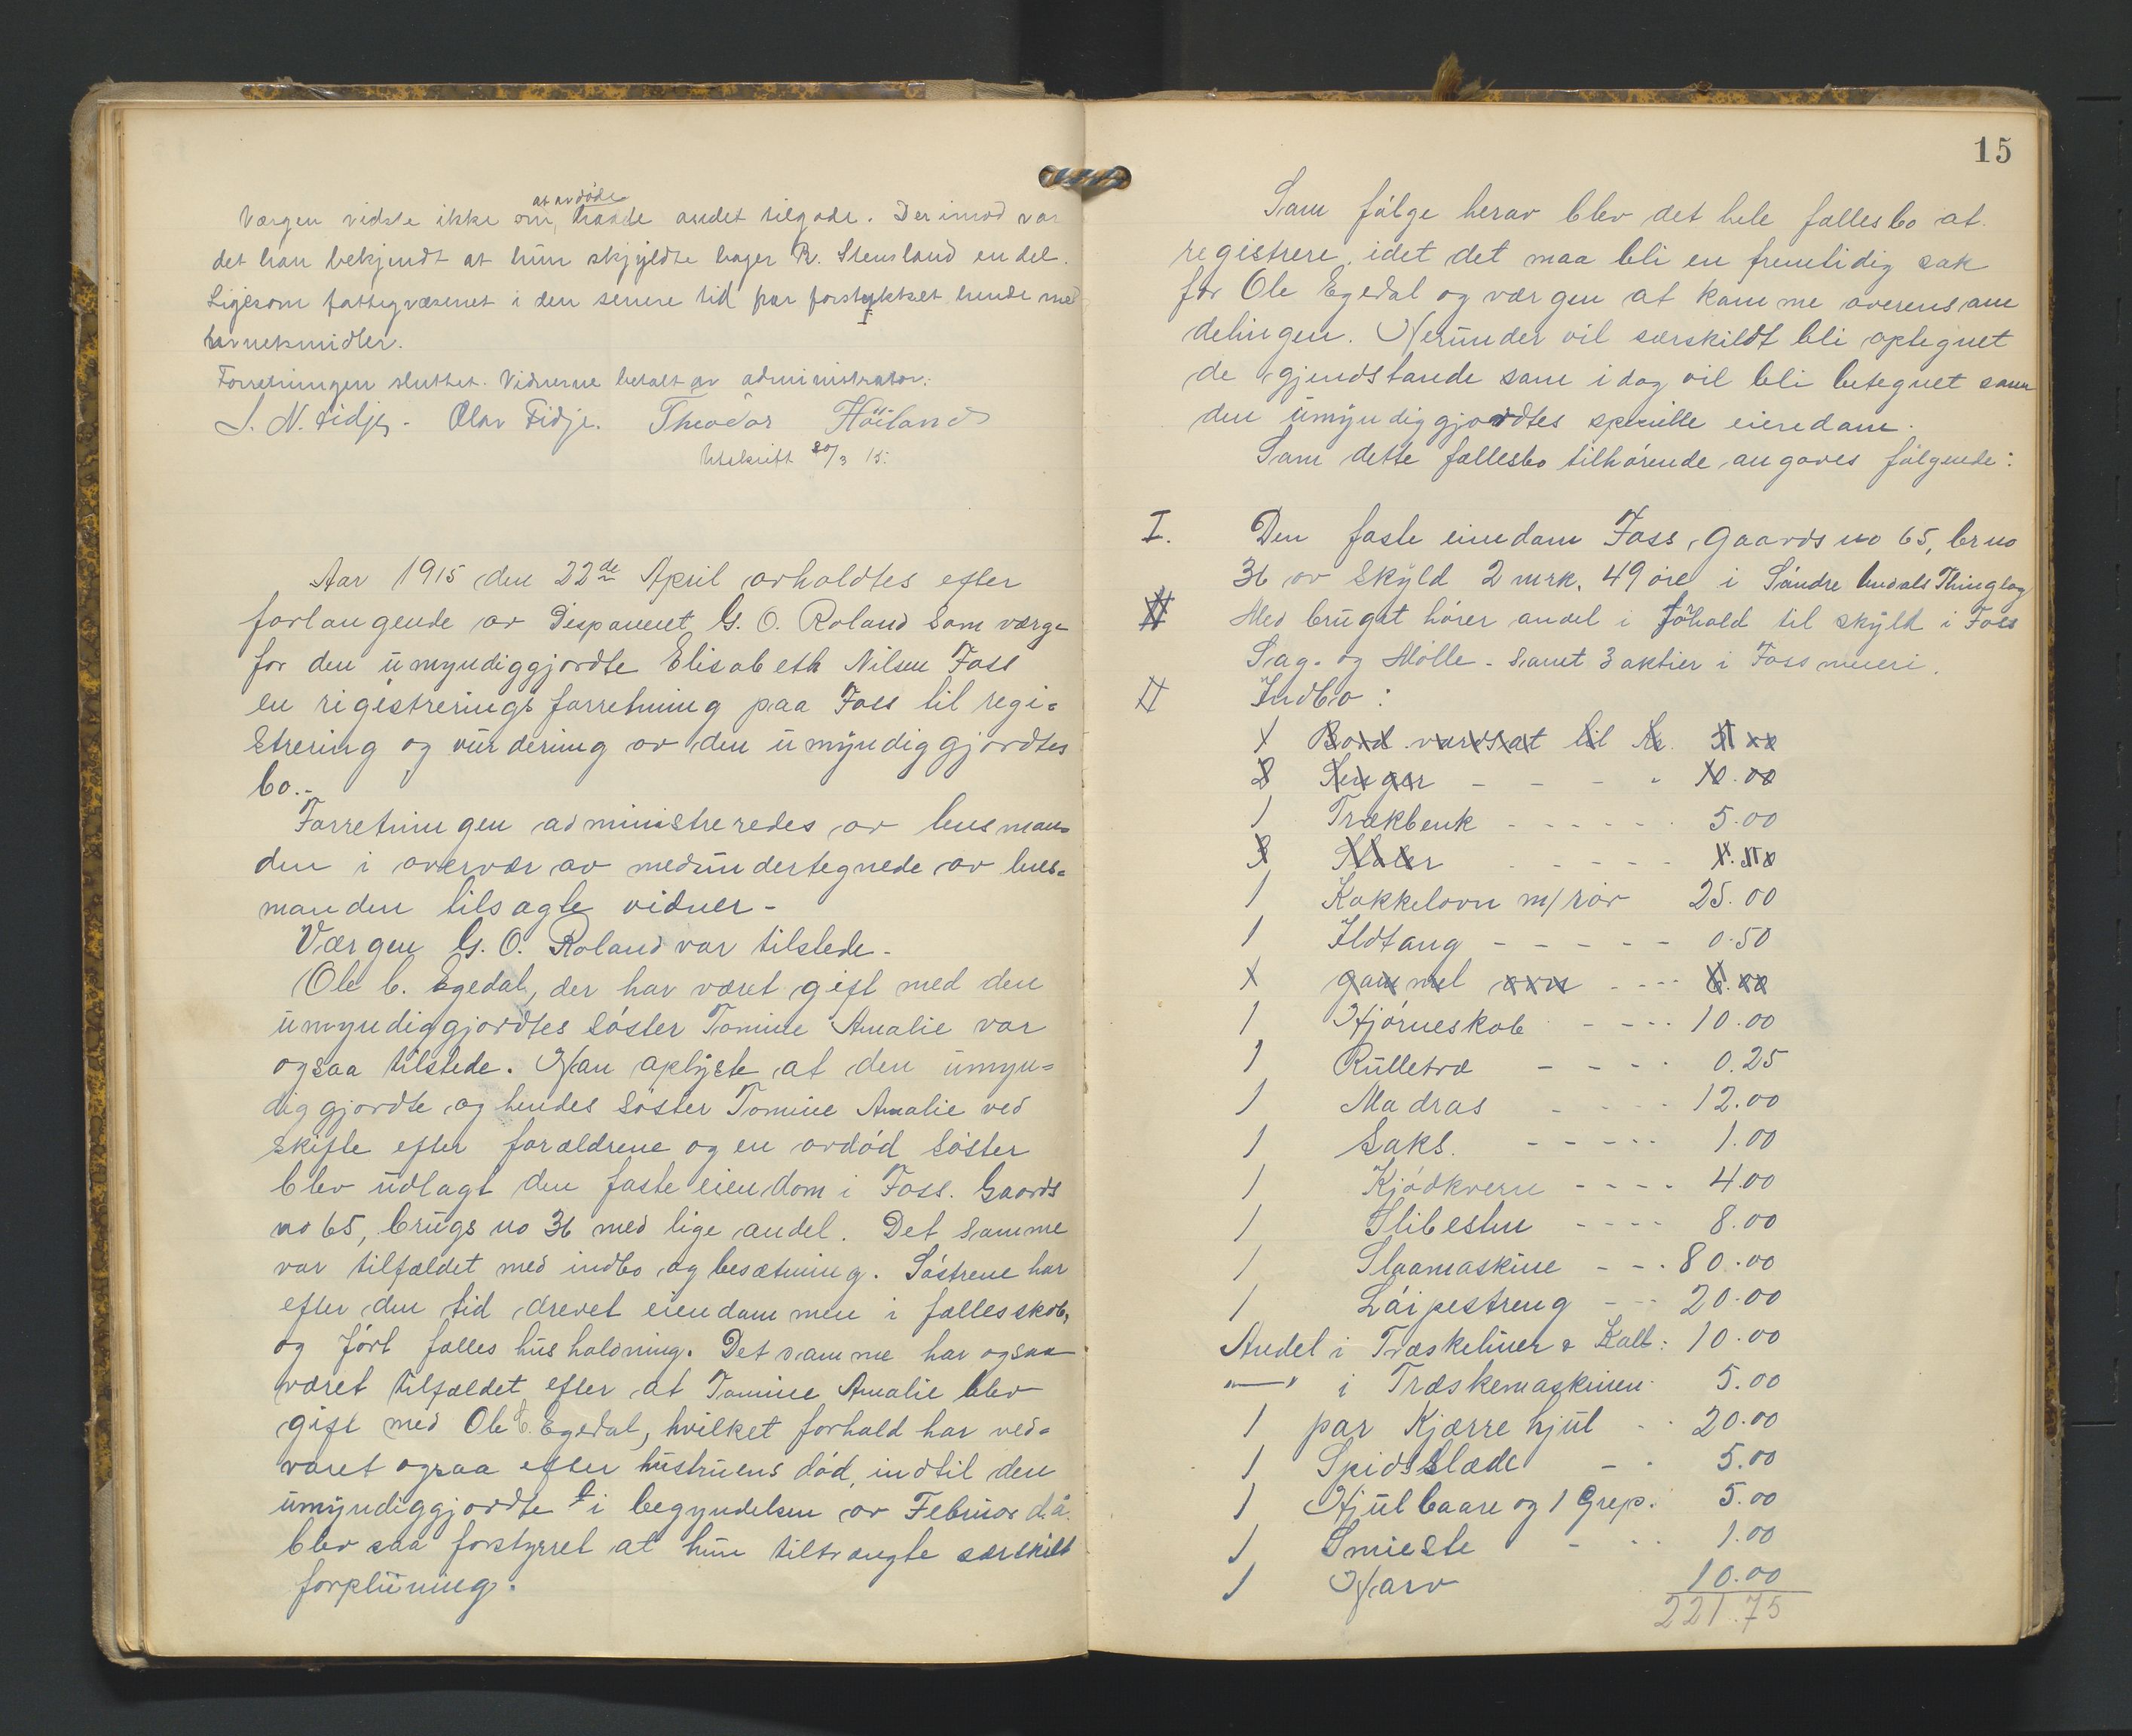 Værgen vidste ikke om at avdöde havde andet tilgode. Derimod var
det han bekjendt at hun skjyldte bager R. Stensland en del.
Ligesom fattigvæsenet i den senere tid har forstyktset hende med
barnekmidler.
Forretningen sluttet. Vidnerne betalt av administrator.
S. N. Fidje. Olav Fidje. Theodor Höiland
Utskrift 20/3 15.
Aar 1915 den 22de April avholdtes efter
forlangende av Disponent G. O. Roland som værge
for den umyndiggjordte Elisabeth Nilsen Foss
en rigistrerings forretning paa Foss til regi=
strering og vurdering av den umyndiggjordtes
bo.-
Forretningen administreredes av lensman=
den i overvær av medundertegnede av lens=
manden tilsagte vidner -
Værgen G. O. Roland var tilstede.
Ole C. Egedal, der har været gift med den
umyndiggjordtes söster Tomine Amalie var
ogsaa tilstede. Han oplyste at den umyn=
diggjordte og hendes söster Tomine Amalie ved
skifte efter forældrene og en avdöd söster
blev udlagt den faste eiendom i Foss. Gaards
no 65, brugs no 36 med lige andel. Det samme
var tilfældet med indbo og besætning. Söstrene har
efter den tid drevet eiendommen i fællesskab,
og fört fælles husholdning. Det samme har ogsaa
været tilfældet efter at Tomine Amalie blev
gift med Ole C. Egedal, hvilket forhold har ved=
varet ogsaa efter hustruens död, indtil den
umyndiggjordte i begyndelsen av Februar d.å.
blev saa forstyrret at hun tiltrængte særskilt
forpleining.
15
Som fölge herav blev det hele fællesbo at
registrere, idet det maa bli en fremtidig sak
for Ole Egedal og værgen at komme overens om
delingen. Herunder vil særskildt bli optegnet
de gjendstande som idag vil bli betegnet som
den umyndiggjordtes specielle eiendom.
Som dette fællesbo tilhörende angaves fölgende:
I. Den faste eiendom Foss, Gaards no 65, br no
36 av skyld 2 mrk. 49 öre i Söndre Undals Thinglag
II Med bruget hörer andel i föhold til skyld i Foss
Sag- og Mölle - samt 3 aktier i Foss meieri.
II Indbo:
1 Bord værdsat til Kr.
2 Senger - - - - 10.00
1 Trækbenk - - - - 5.00
3 Stoler - - - -
1 Kakkelovn m/rör 25.00
1 Ildtang - - - - - 0.50
1 gammel ovn - - - - 6.00
1 Hjörneskab - - - - 10.00
1 Rulletræ - - - - 0.25
1 Madras - - - - 12.00
1 Saks. - - - - - 1.00
1 Kjödkvern - - - - 4.00
1 Slibesten - - - - 8.00
1 Slaamaskine - - - 80.00
1 Löipestreng - - - 20.00
Andel i Træskehuer & Kalt: 10.00
"—" i Træskemaskinen 5.00
1 par Kjærre hjul - - 20.00
1 Spidsslæde - - 5.00
1 Hjulbaare og 1 Grep. 5.00
1 Smieste - - - 1.00
1 Harv 10.00
221.75